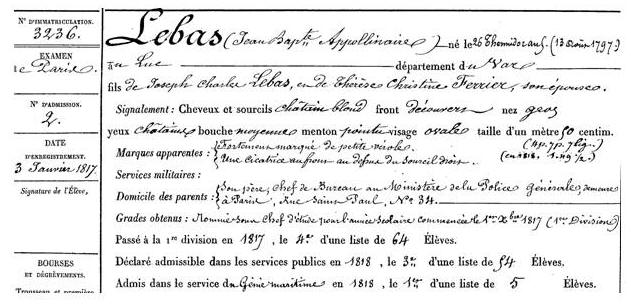 N° D'IMMATRICULATION.
3236.
EXAMEN
de Paris.
N° D'ADMISSION.
2.
DATE
D'ENREGISTREMENT.
3 Janvier 1817.
Signature de l'Élève,
BOURSES
ET DÉGRÈVEMENTS.
Trousseau et première
Lebas (Jean Bapte Appollinaire) né le 26 Thermidor an 5. (13 Août 1797)
à au Luc département du Var
fils de Joseph Charles Lebas, et de Thérèse Christine Ferrier, son épouse.
Signalement: Cheveux et sourcils châtain blond front découvert nez gros
yeux châtains bouche moyenne menton pointu visage ovale taille d'un mètre 50 centim.
(4p. 7p. 7lig.)
Marques apparentes: Fortement marqué de petite vérole. (en 1818. 1.49 %.)
Une cicatrice au front au dessus du sourcil droit.
Services militaires:
Domicile des parents: Son père, Chef de Bureau au Ministère de la Police générale, demeure
à Paris, Rue Saint Paul, No. 34.
Grades obtenus: Nommé sous Chef d'étude pour l'année scolaire commencée le 1er Xbre 1817 (1ere Division)
Passé à la 1re division en 1817, le 4e d'une liste de 64 Élèves.
Déclaré admissible dans les services publics en 1818, le 3e d'une liste de 54 Élèves.
Admis dans le service du Génie maritime en 1818, le 1er d'une liste de 5 Élèves.